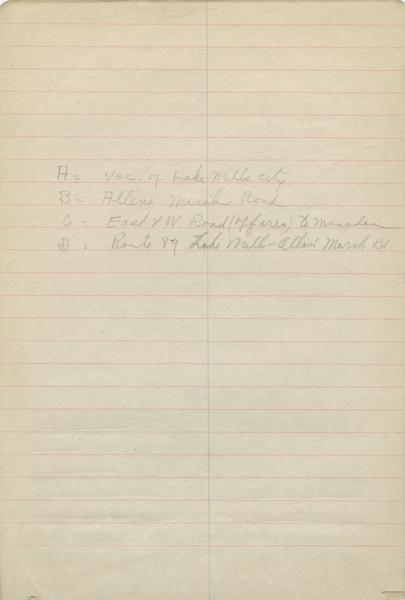 A = Vac. of Lake Mills city
B = Allen's Marsh Road
C = East & W. Road (off area) to Macadam
D = Route 89 Lake Mills - Allen's Marsh Rd